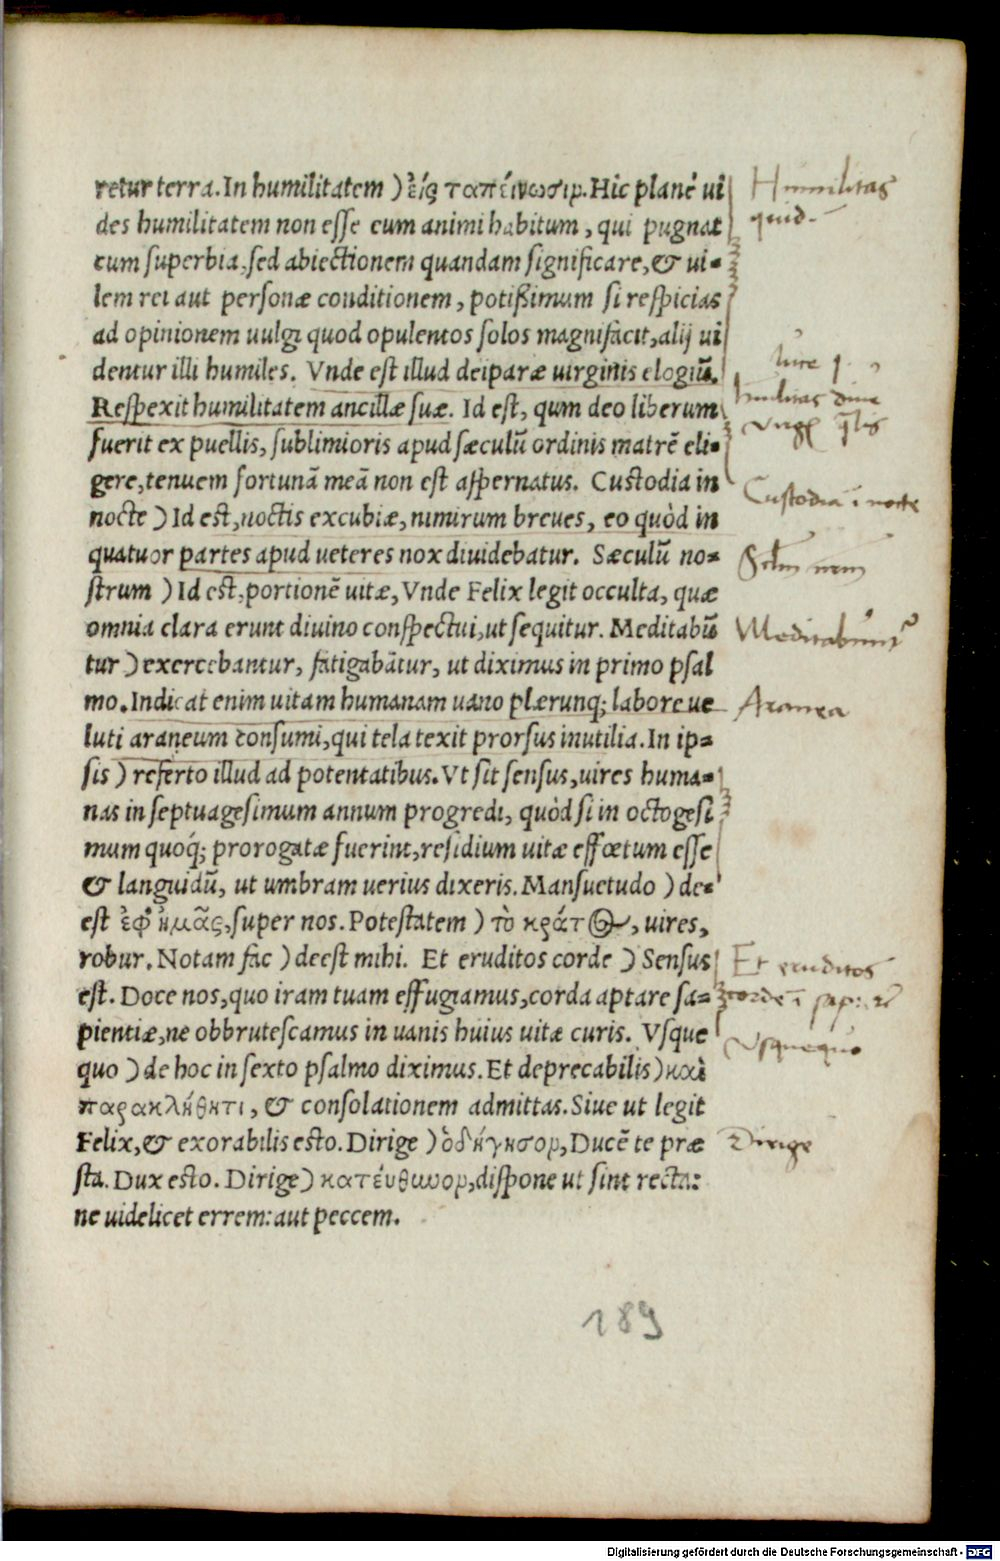 retur terra. In humilitatem ) ἐίς ταπείνωσιν. Hic planè ui
des humilitatem non esse eum animi habitum, qui pugnat
cum superbia, sed abiectionem quandam significare, & ui-
lem rei aut personæ conditionem, potißimum si respicias
ad opinionem uulgi quod opulentos solos magnifacit, alij ui
dentur illi humiles. Vnde est illud deiparæ uirginis elogiũ.
Respexit humilitatem ancillæ suæ. Id est, qum deo liberum
fuerit ex puellis, sublimioris apud sæculũ ordinis matrẽ eli-
gere, tenuem fortunã meã non est aspernatus. Custodia in
nocte ) Id est, noctis excubiæ, nimirum breues, eo quòd in
quatuor partes apud ueteres nox diuidebatur. Sæculũ no-
strum ) Id est, portionẽ uitæ, Vnde Felix legit occulta, quæ
omnia clara erunt diuino conspectui, ut sequitur. Meditabũ
tur ) exercebantur, fatigabãtur, ut diximus in primo psal
mo. Indicat enim uitam humanam uano plærunq; labore ue
luti araneum consumi, qui tela texit prorsus inutilia. In ip-
sis ) referto illud ad potentatibus. Vt sit sensus, uires huma-
nas in septuagesimum annum progredi, quòd si in octogesi
mum quoq́; prorogatæ fuerint, residium uitæ effœtum esse
& languidũ, ut umbram uerius dixeris. Mansuetudo ) de-
est ἐφ' ἡμᾶς, super nos. Potestatem ) τὸ κράτος, uires,
robur. Notam fac ) deest mihi. Et eruditos corde ) Sensus
est. Doce nos, quo iram tuam effugiamus, corda aptare sa-
pientiæ, ne obbrutescamus in uanis huius uitæ curis. Vsque
quo ) de hoc in sexto psalmo diximus. Et deprecabilis ) καὶ
παρακλήθητι, & consolationem admittas. Siue ut legit
Felix, & exorabilis esto. Dirige ) ὁδήγησον, Ducẽ te præ
sta. Dux esto. Dirige ) κατέυθωνον, dispone ut sint recta:
ne uidelicet errem: aut peccem.
Humilitas
quid.
luce 1.
humilitas diue
Custodia ĩ nocte
Meditabunt
Aranea
Et eruditos
corde ĩ sap:
Vsquequo
Dirige
189
Digitalisierung gefördert durch die Deutsche Forschungsgemeinschaft - DFG